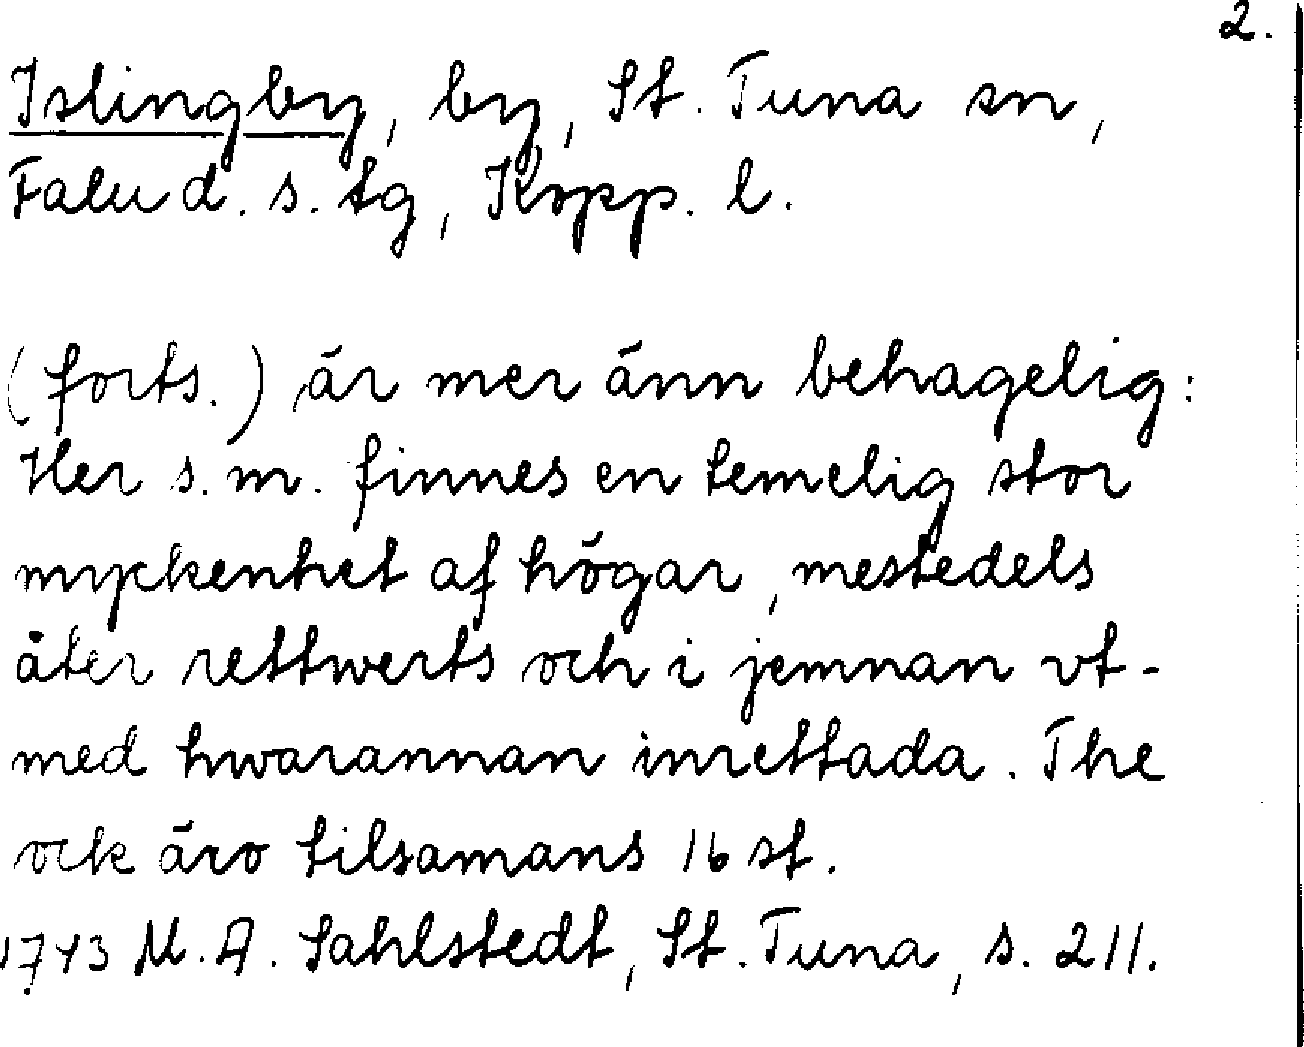 2.
Islingby, by, St. Tuna sn,
Falu d. s. tg, Kopp. l.
(forts.) är mer änn behagelig:
Her s. m. finnes en temelig stor
myckenhet af högar, mestedels
åter rettwerts och i jemnan vt-
med hwarannan inrettada. The
ock äro tilsamans 16 st.
1743 M. A. Sahlstedt, St. Tuna, s. 211.